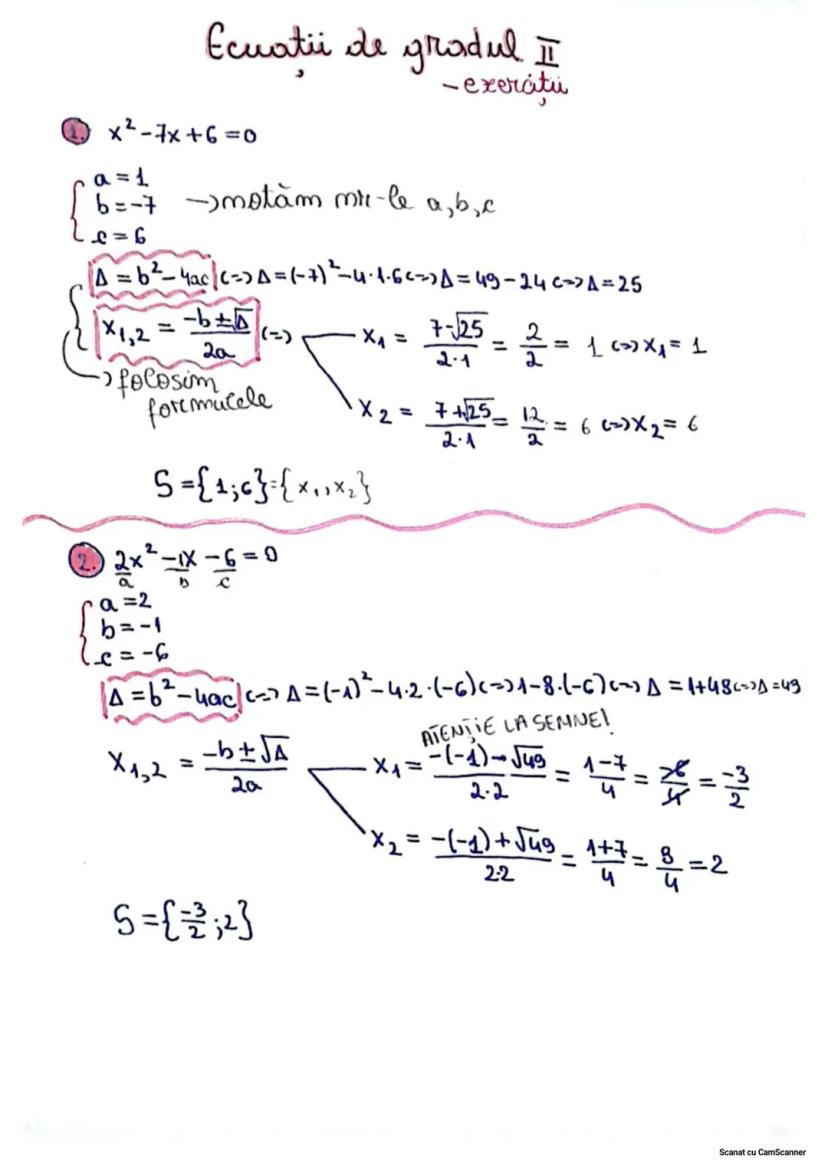 Ecuații de gradul II
- exerciții
1. x² - 7x + 6 = 0
a = 1
b = -7 → notăm nr-le a, b, c
c = 6
Δ = b² - 4ac <=> Δ = (-7)² - 4·1·6 <=> Δ = 49 - 24 <=> Δ = 25
x₁,₂ = (-b ± √Δ)/2a <=>
x₁ = (7-√25)/(2·1) = 2/2 = 1 <=> x₁ = 1
→ folosim formulele
x₂ = (7+√25)/(2·1) = 12/2 = 6 <=> x₂ = 6
S = {1; 6} = {x₁, x₂}
2. 2x² - 1x - 6 = 0
a b c
a = 2
b = -1
c = -6
Δ = b² - 4ac <=> Δ = (-1)² - 4·2·(-6) <=> 1 - 8·(-6) <=> Δ = 1 + 48 <=> Δ = 49
ATENȚIE LA SEMNE!
x₁,₂ = (-b ± √Δ)/2a
x₁ = (-(-1) - √49)/(2·2) = (1-7)/4 = -6/4 = -3/2
x₂ = (-(-1) + √49)/(2·2) = (1+7)/4 = 8/4 = 2
S = {-3/2; 2}
Scanat cu CamScanner